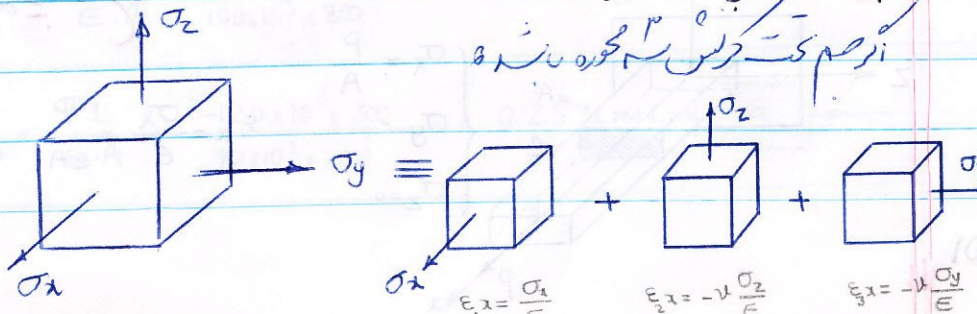 اگر جسم تحت کرنش سه محوره باشد
σz
σy ≡ + + σz σ
σx σx
ε₁x = σx/E ε₂x = -ν σz/E ε₃x = -ν σy/E